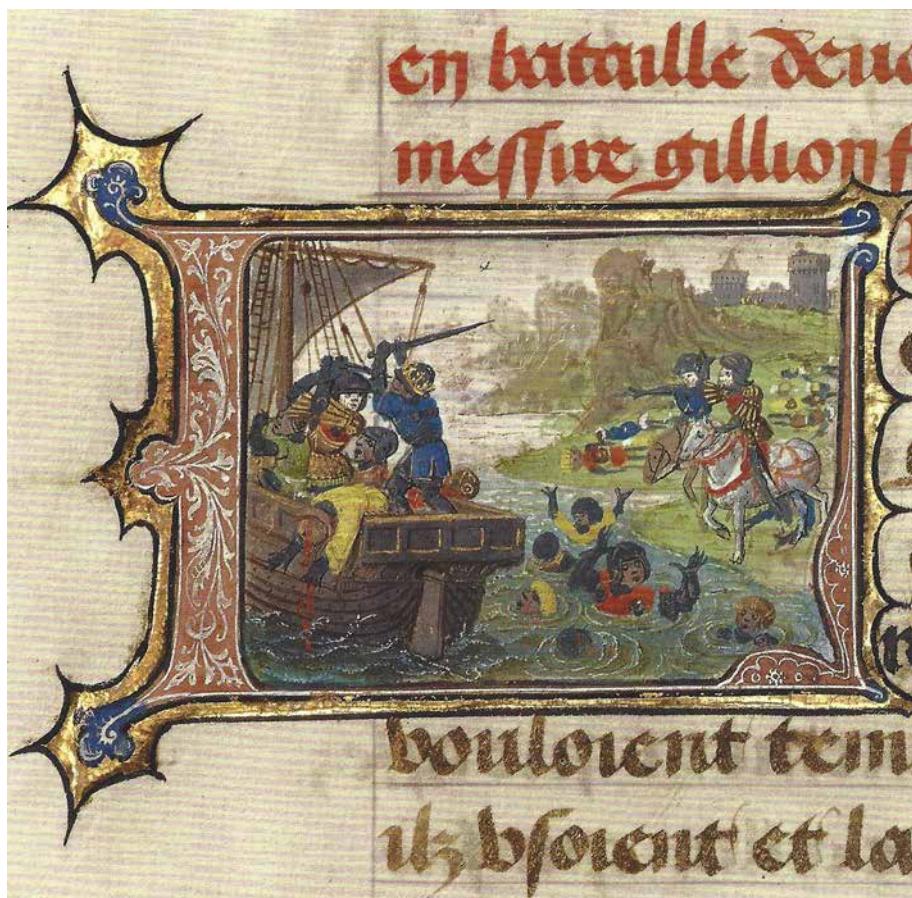 en bataille deu
messire gillion f
vouloient tem
ilz vsoient et la